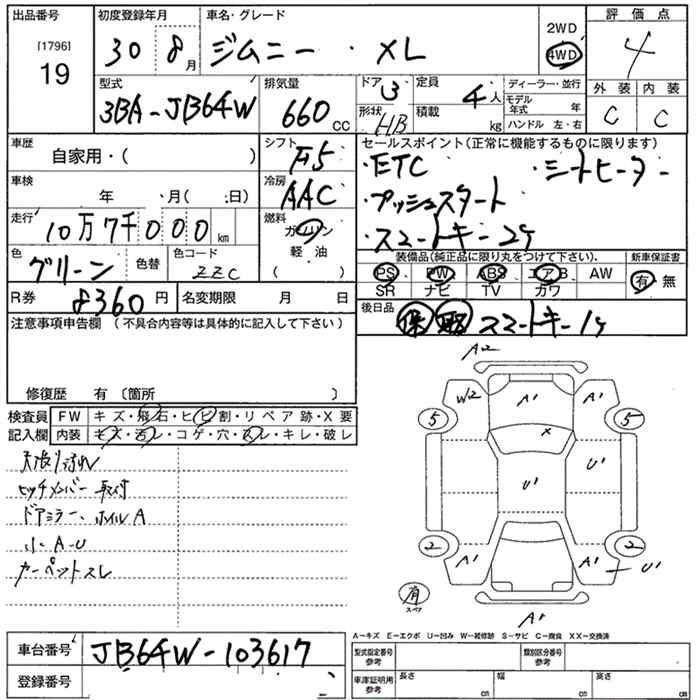 出品番号 初度登録年月 車名・グレード 2WD 4WD 評価点
[1796] 19 30 8月 ジムニー ・ XL 4
型式 排気量 ドア 3 定員 4人 ディーラー・並行 外装 内装
3BA-JB64W 660CC 形状 HB 積載 kg モデル年式 年 C C
ハンドル 左・右
車歴 自家用・( ) シフト F5 セールスポイント(正常に機能するものに限ります)
・ETC ・シートヒーター
車検 年 月(・日) 冷房 AAC ・プッシュスタート
走行 10万7千000km 燃料 ガソリン ・スマートキー2ケ
色 グリーン 色替 色コード ZZC 軽油 ( )
装備品(純正品に限り丸をつけて下さい). 新車保証書
PS PW ABS エアB AW 有・無
SR ナビ TV カワ
R券 8360円 名変期限 月 日 後日品 保 取 スマートキー1ケ
注意事項申告欄 (不具合内容等は具体的に記入して下さい)
修復歴 有 〔箇所 〕
検査員記入欄 FW キズ・飛石・ヒビ割・リペア跡・X要
内装 キズ・汚レ・コゲ・穴・スレ・キレ・破レ
天張り汚れ
ヒッチメンバー取付
ドアミラー、ホイルA
小 A-U
カーペットスレ
A2
W2 A' A'
5 5
X
U' U'
2 2
A' A' U'
有 スペア
A'
A-キズ E-エクボ U-凹み W-補修跡 S-サビ C-腐食 XX-交換済
車台番号 JB64W-103617
登録番号
型式指定番号 参考 類別区分番号 参考
車庫証明用 参考 長さ cm 幅 cm 高さ cm